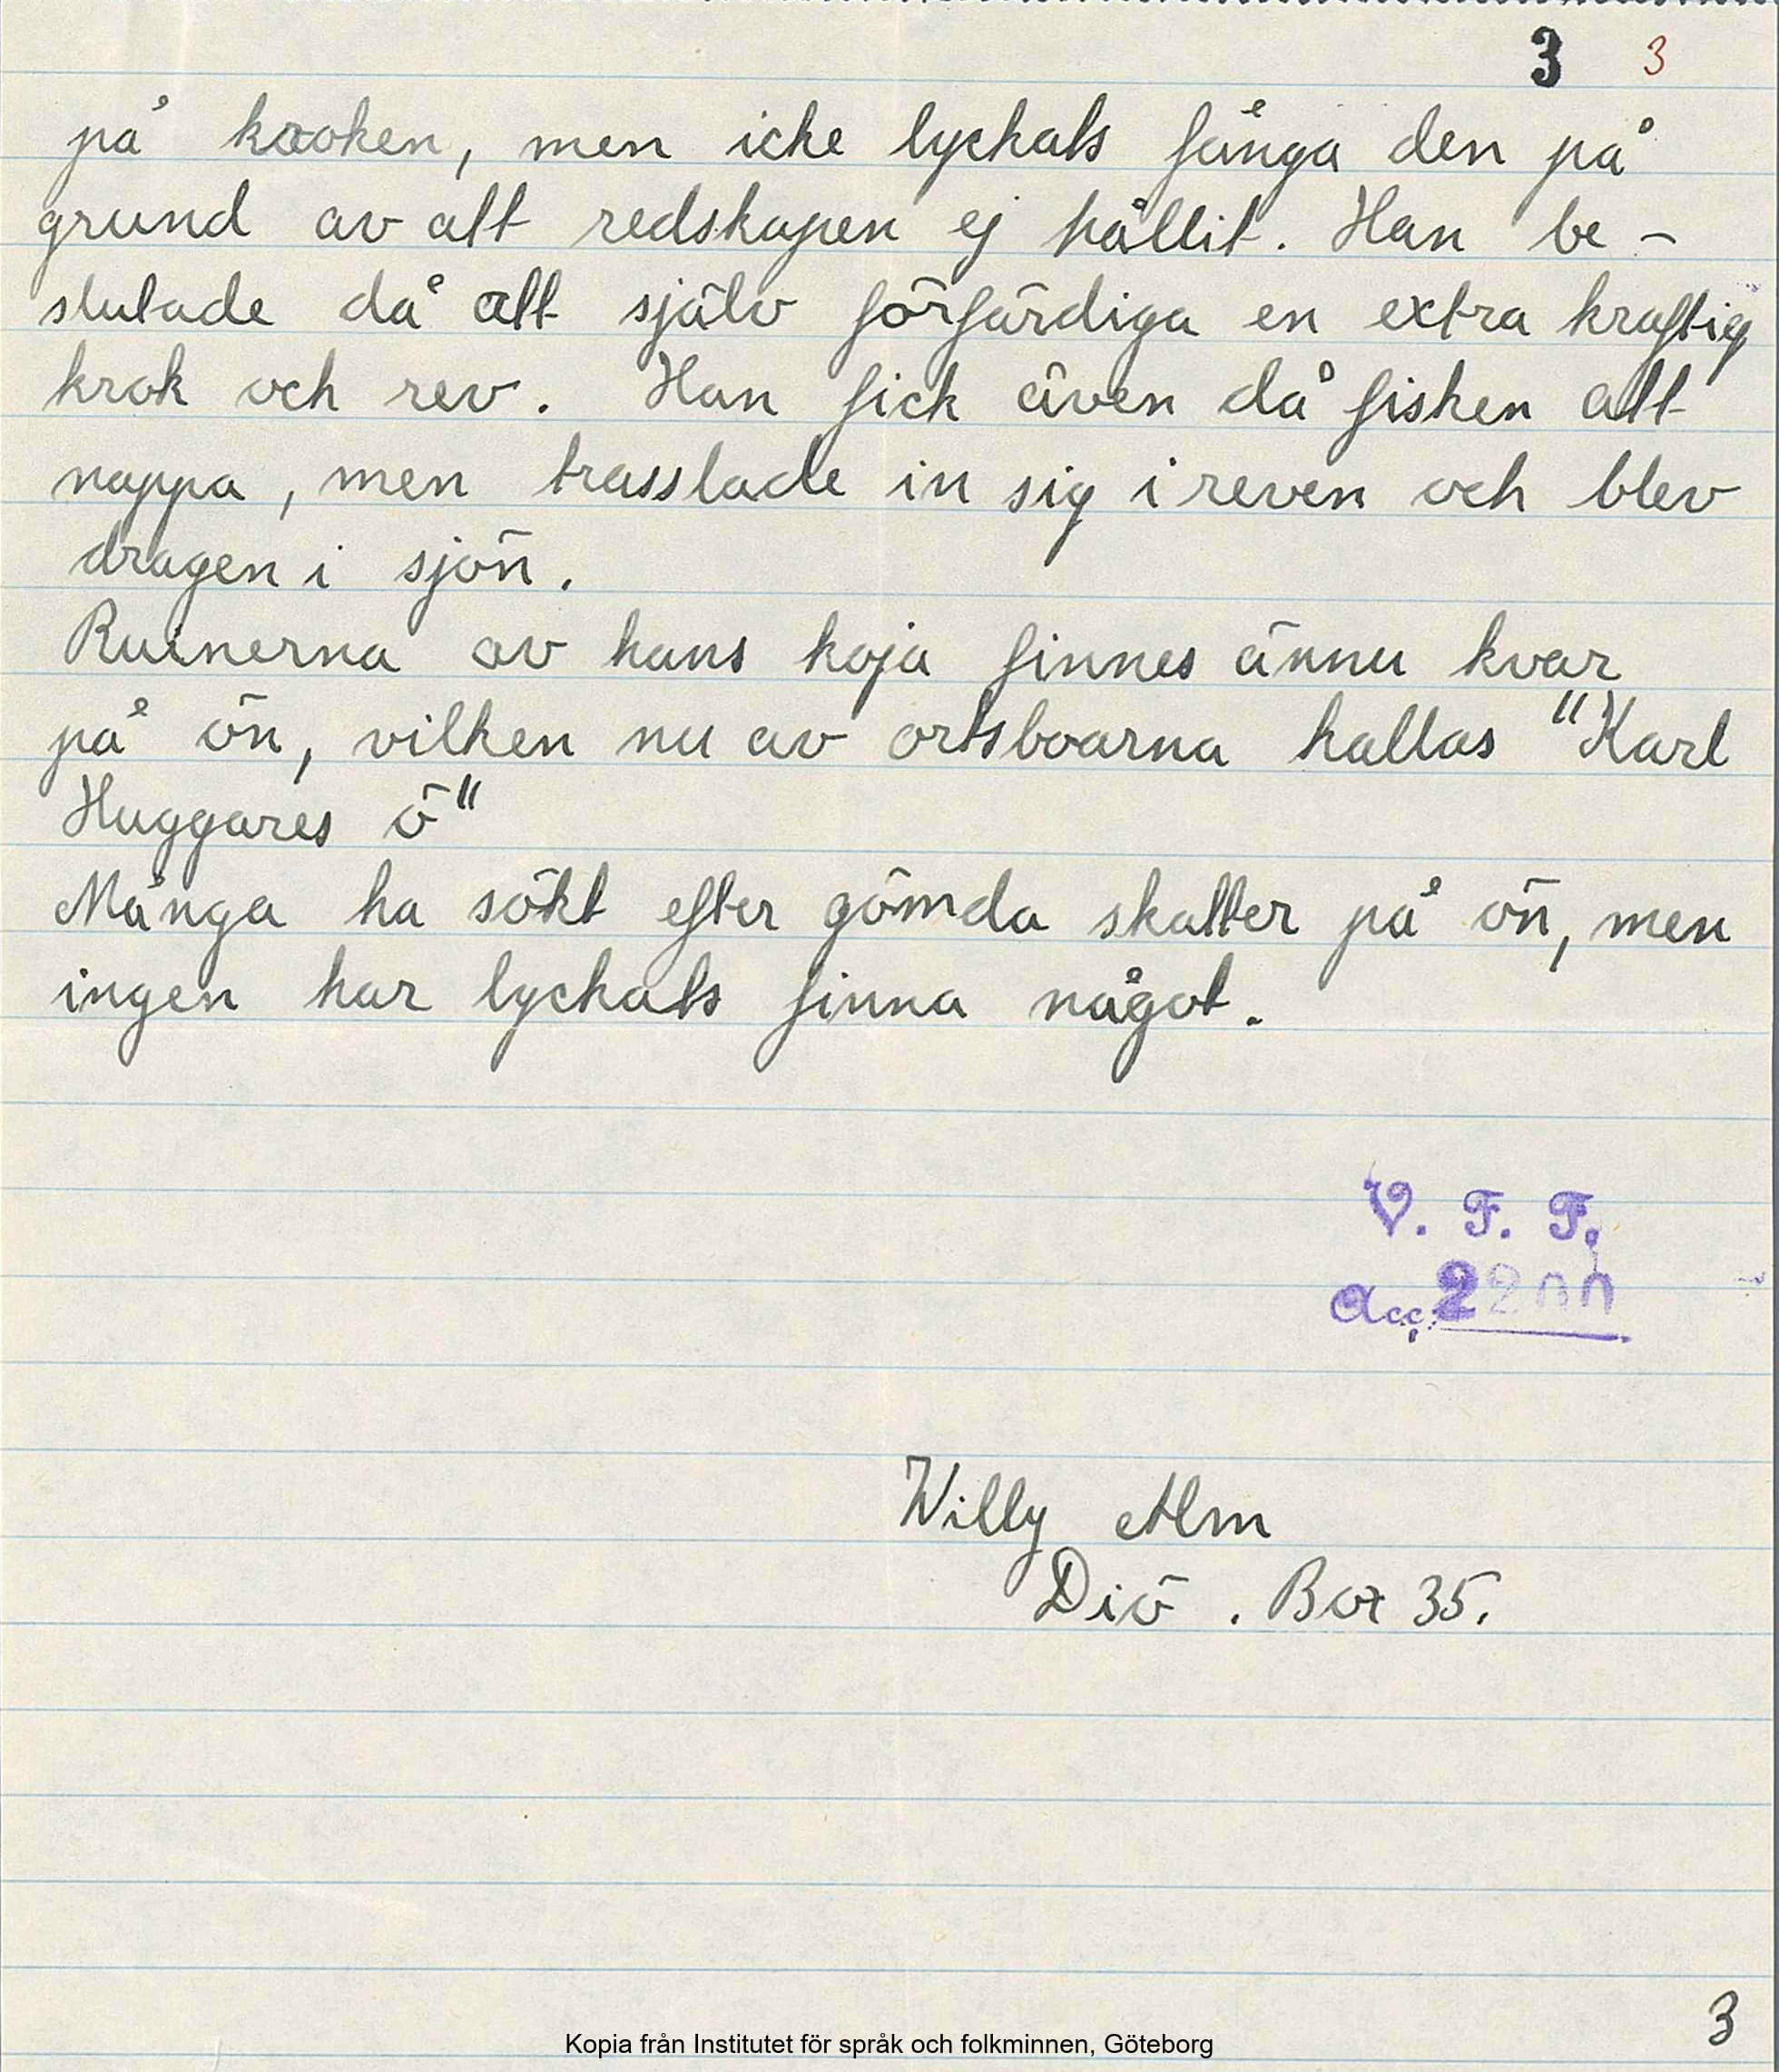 3 3
på kroken, men icke lyckats fånga den på
grund av att redskapen ej hållit. Han be-
slutade då att själv förfärdiga en extra kraftig
krok och rev. Han fick även då fisken att
nappa, men trasslade in sig i reven och blev
dragen i sjön.
Ruinerna av hans koja finnes ännu kvar
på ön, vilken nu av ortsboarna kallas "Karl
Huggares ö"
Många ha sökt efter gömda skatter på ön, men
ingen har lyckats finna något.
V. F. F.
Acc. 2200
Willy Alm
Diö. Box 35.
3
Kopia från Institutet för språk och folkminnen, Göteborg